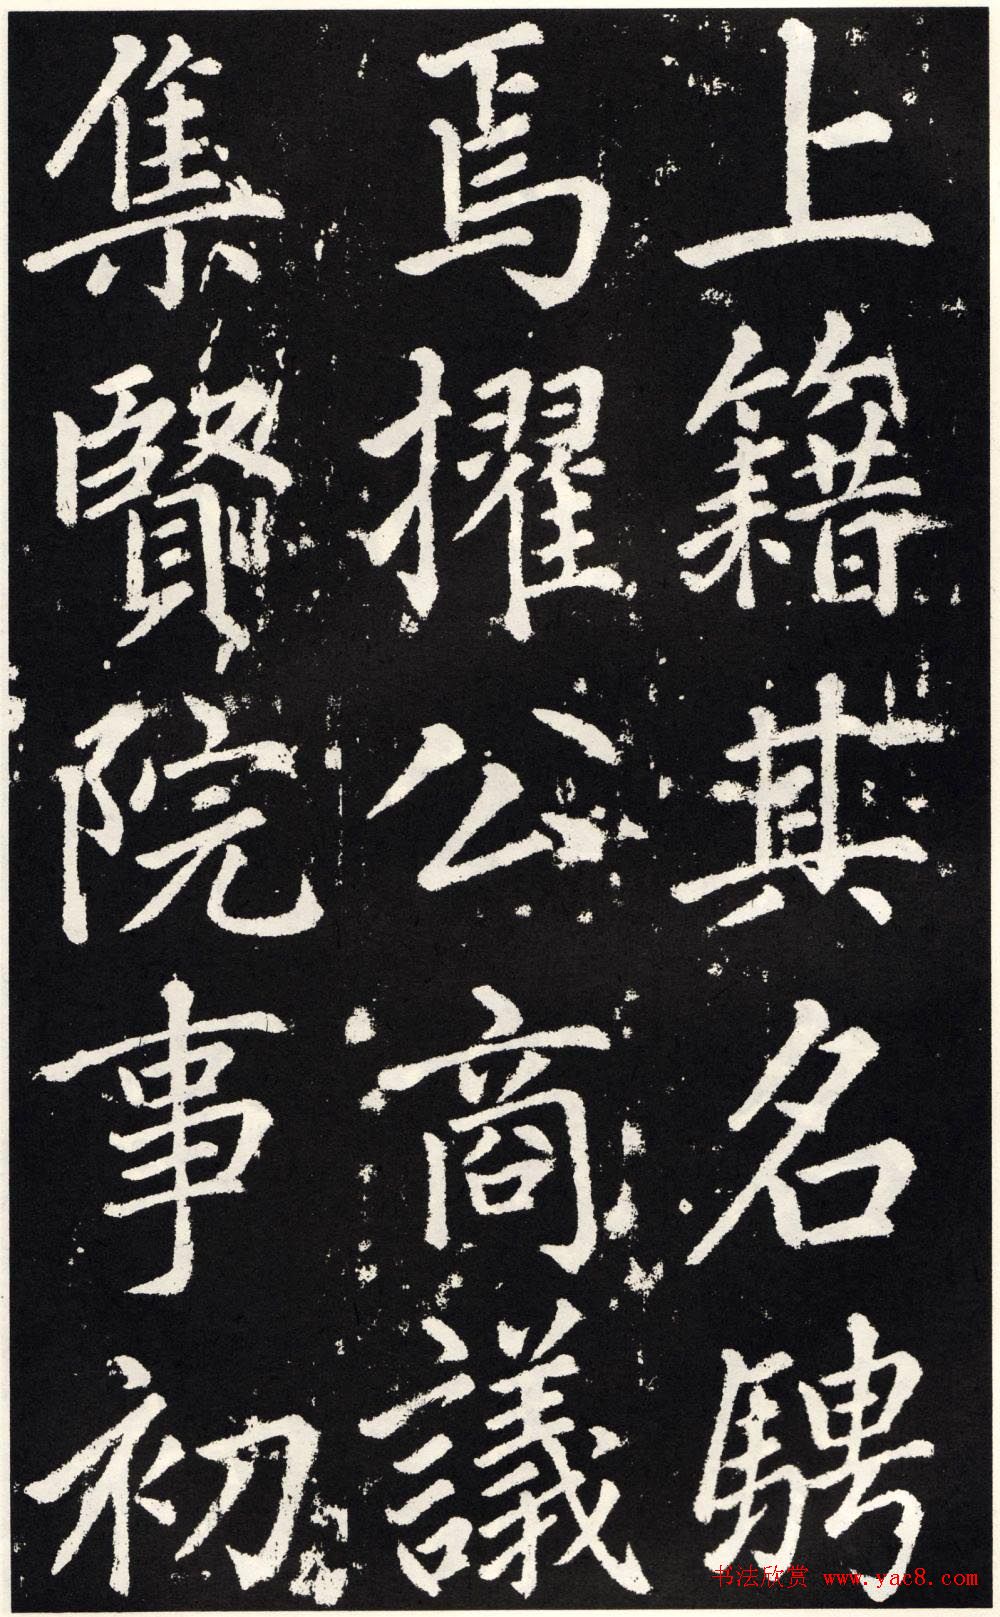 上籍其名騁
焉擢公商議
集賢院事初
书法欣赏 www.yac8.com